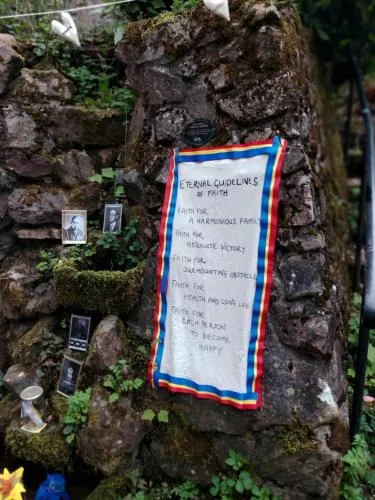 ETERNAL GUIDELINES
OF FAITH
FAITH FOR
A HARMONIOUS FAMILY
FAITH FOR
ABSOLUTE VICTORY
FAITH FOR
SURMOUNTING OBSTACLES
FAITH FOR
HEALTH AND LONG LIFE
FAITH FOR
EACH PERSON
TO BECOME
HAPPY